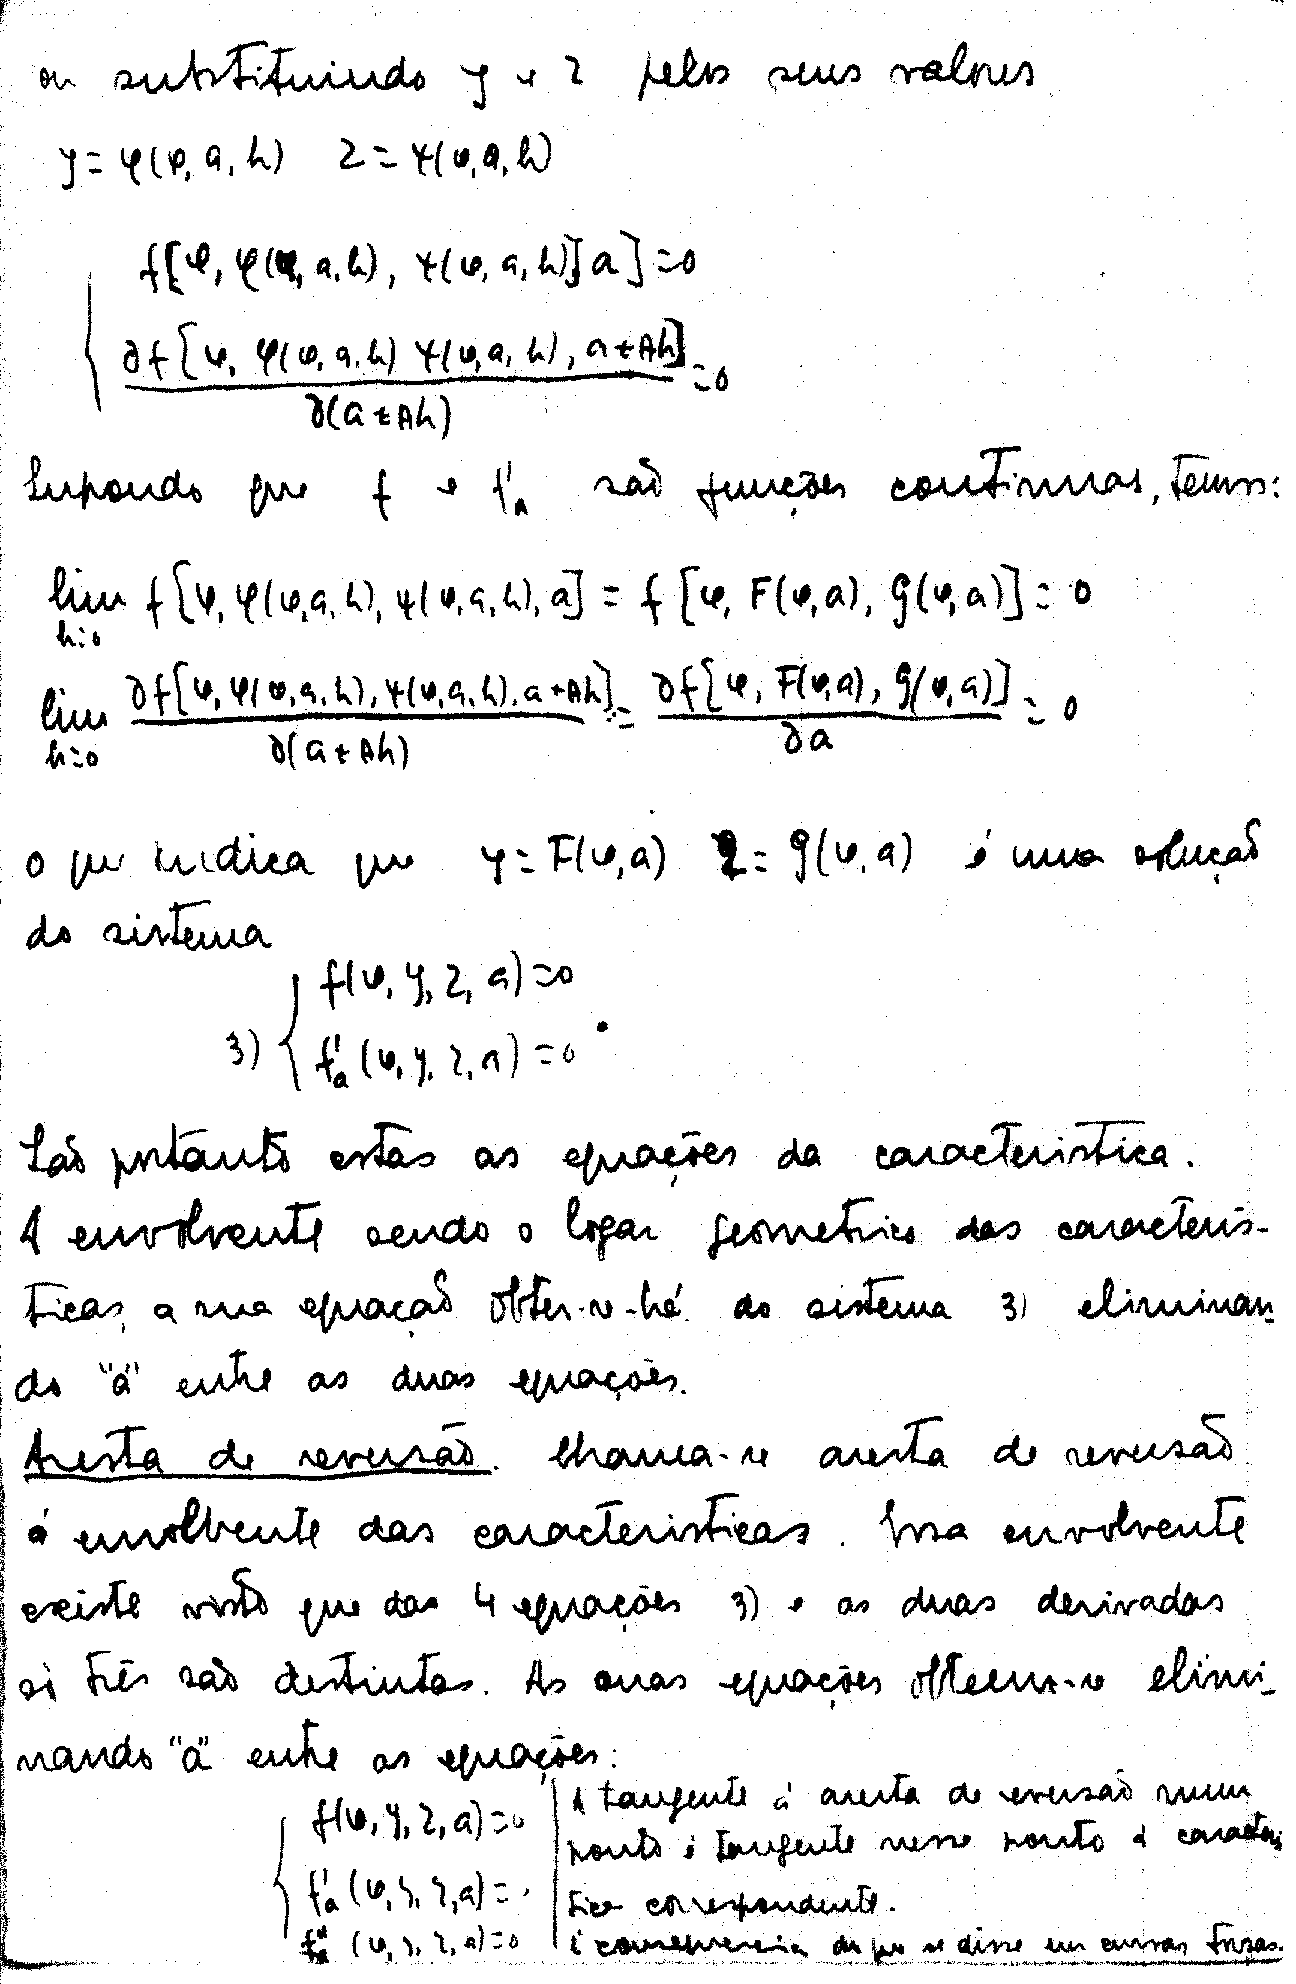 ou substituindo y e z pelos seus valores
y = φ(φ, a, h)   z = ψ(φ, a, h)
f[φ, φ(φ, a, h), ψ(φ, a, h)] a] = 0
∂f[φ, φ(φ, a, h) ψ(φ, a, h), a ± Ah] = 0
∂(a ± Ah)
Supondo que f e f'a são funções continuas, temos:
lim f[φ, φ(φ, a, h), ψ(φ, a, h), a] = f[φ, F(φ, a), g(φ, a)] = 0
h=0
lim ∂f[φ, φ(φ, a, h), ψ(φ, a, h), a + Ah] = ∂f[φ, F(φ, a), g(φ, a)] = 0
h=0 ∂(a ± Ah) ∂a
o que indica que y = F(φ, a) z = g(φ, a) é uma solução
do sistema
f(φ, y, z, a) = 0
3) f'a (φ, y, z, a) = 0
São portanto estas as equações da caracteristica.
A envolvente sendo o logar geometrico das caracterís-
ticas, a sua equação obter-se-há do sistema 3) eliminan-
do "a" entre as duas equações.
Aresta de reversão. Chama-se aresta de reversão
á envolvente das caracteristicas. Essa envolvente
existe visto que das 4 equações 3) e as duas derivadas
só três são distintas. As suas equações obteem-se elimi-
nando "a" entre as equações:
f(φ, y, z, a) = 0
f'a (φ, y, z, a) = 0
f''a (φ, y, z, a) = 0
A tangente á aresta de reversão num
ponto é tangente nesse ponto á caracterís
tica correspondente.
É consequencia do que se disse em curvas torsas.